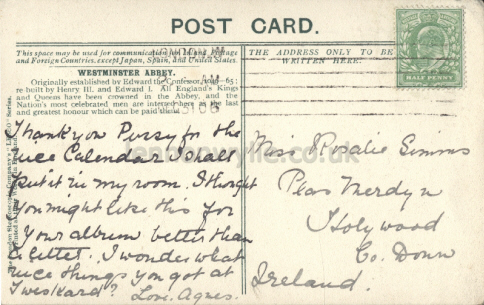 POST CARD.
This space may be used for communication for Inland Postage
and Foreign Countries, except Japan, Spain, and United States.
THE ADDRESS ONLY TO BE
WRITTEN HERE.
HALF PENNY
WESTMINSTER ABBEY.
Originally established by Edward the Confessor,
re built by Henry III. and Edward I. All England's Kings
and Queens have been crowned in the Abbey, and the
Nation's most celebrated men are interred here as the last
and greatest honour which can be paid them.
Thank you Pussy for the
nice Calendar I shall
put it in my room. I thought
you might like this for
your album better than
a letter. I wonder what
nice things you got at
Love Agnes.
Miss Rosalie Simms
Plas Merdyn
Holywood
Co. Down
Ireland.